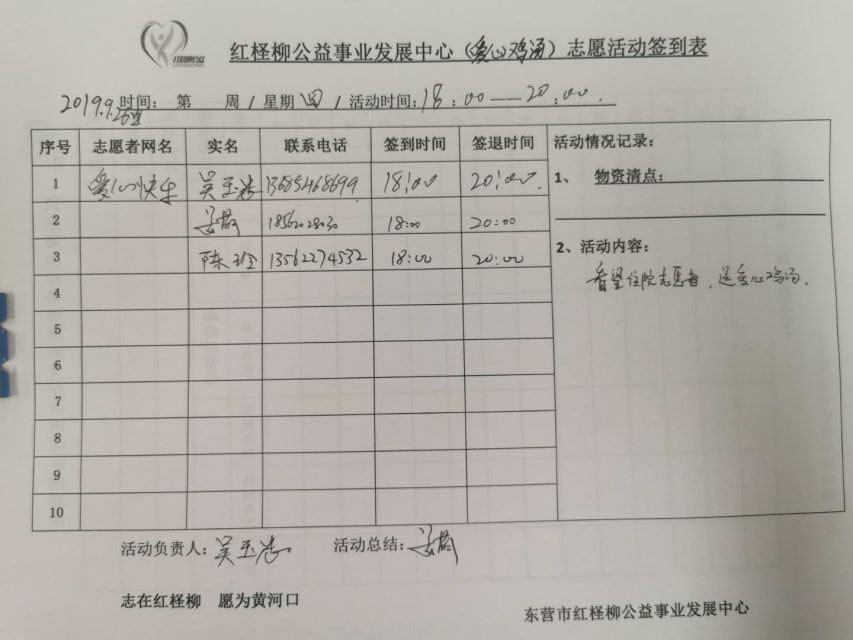 红柽柳公益事业发展中心（爱心鸡汤）志愿活动签到表
2019.9.26 时间： 第 周 / 星期 四 / 活动时间：18：00——20：00.
序号 志愿者网名 实名 联系电话 签到时间 签退时间 活动情况记录：
1 爱心快车 吴玉 13685468699 18:00 20:00. 1、 物资清点：
2 18:00 20:00
2、活动内容：
3 陈 13562274532 18:00 20:00
看望住院志愿者，送爱心鸡汤。
4
5
6
7
8
9
10
活动负责人：吴玉 活动总结：
志在红柽柳 愿为黄河口
东营市红柽柳公益事业发展中心